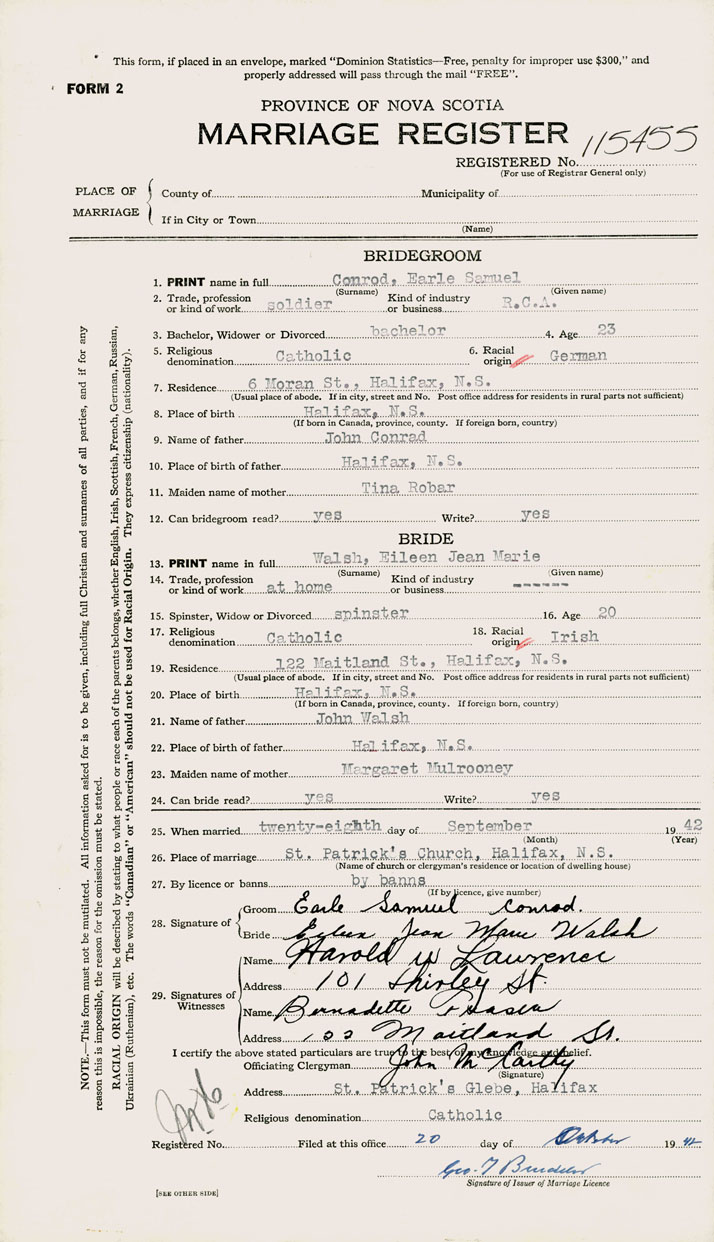 This form, if placed in an envelope, marked "Dominion Statistics—Free, penalty for improper use $300," and
properly addressed will pass through the mail "FREE".
FORM 2
PROVINCE OF NOVA SCOTIA
MARRIAGE REGISTER
115455
REGISTERED No.
(For use of Registrar General only)
PLACE OF MARRIAGE
County of Municipality of
If in City or Town
(Name)
BRIDEGROOM
1. PRINT name in full Conrod, Earle Samuel
(Surname) (Given name)
2. Trade, profession or kind of work soldier Kind of industry or business R.C.A.
3. Bachelor, Widower or Divorced bachelor 4. Age 23
5. Religious denomination Catholic 6. Racial origin German
7. Residence 6 Moran St., Halifax, N.S.
(Usual place of abode. If in city, street and No. Post office address for residents in rural parts not sufficient)
8. Place of birth Halifax, N.S.
(If born in Canada, province, county. If foreign born, country)
9. Name of father John Conrad
10. Place of birth of father Halifax, N.S.
11. Maiden name of mother Tina Robar
12. Can bridegroom read? yes Write? yes
BRIDE
13. PRINT name in full Walsh, Eileen Jean Marie
(Surname) (Given name)
14. Trade, profession or kind of work at home Kind of industry or business ------
15. Spinster, Widow or Divorced spinster 16. Age 20
17. Religious denomination Catholic 18. Racial origin Irish
19. Residence 122 Maitland St., Halifax, N.S.
(Usual place of abode. If in city, street and No. Post office address for residents in rural parts not sufficient)
20. Place of birth Halifax, N.S.
(If born in Canada, province, county. If foreign born, country)
21. Name of father John Walsh
22. Place of birth of father Halifax, N.S.
23. Maiden name of mother Margaret Mulrooney
24. Can bride read? yes Write? yes
25. When married twenty-eighth day of September 19 42
(Month) (Year)
26. Place of marriage St. Patrick's Church, Halifax, N.S.
(Name of church or clergyman's residence or location of dwelling house)
27. By licence or banns by banns
(If by licence, give number)
28. Signature of
Groom Earle Samuel Conrod.
Bride Eyleen Jean Marie Walsh
29. Signatures of Witnesses
Name Harold W Lawrence
Address 101 Shirley St.
Name Bernadette Fraser
Address Maitland St.
I certify the above stated particulars are true to the best of my knowledge and belief.
Officiating Clergyman John McCarthy
(Signature)
Address St. Patrick's Glebe, Halifax
Religious denomination Catholic
Registered No. Filed at this office 20 day of October 19 42
Geo. T
Signature of Issuer of Marriage Licence
[SEE OTHER SIDE]
NOTE.—This form must not be mutilated. All information asked for is to be given, including full Christian and surnames of all parties, and if for any
reason this is impossible, the reason for the omission must be stated.
RACIAL ORIGIN will be described by stating to what people or race each of the parents belongs, whether English, Irish, Scottish, French, German, Russian,
Ukrainian (Ruthenian), etc. The words "Canadian" or "American" should not be used for Racial Origin. They express citizenship (nationality).